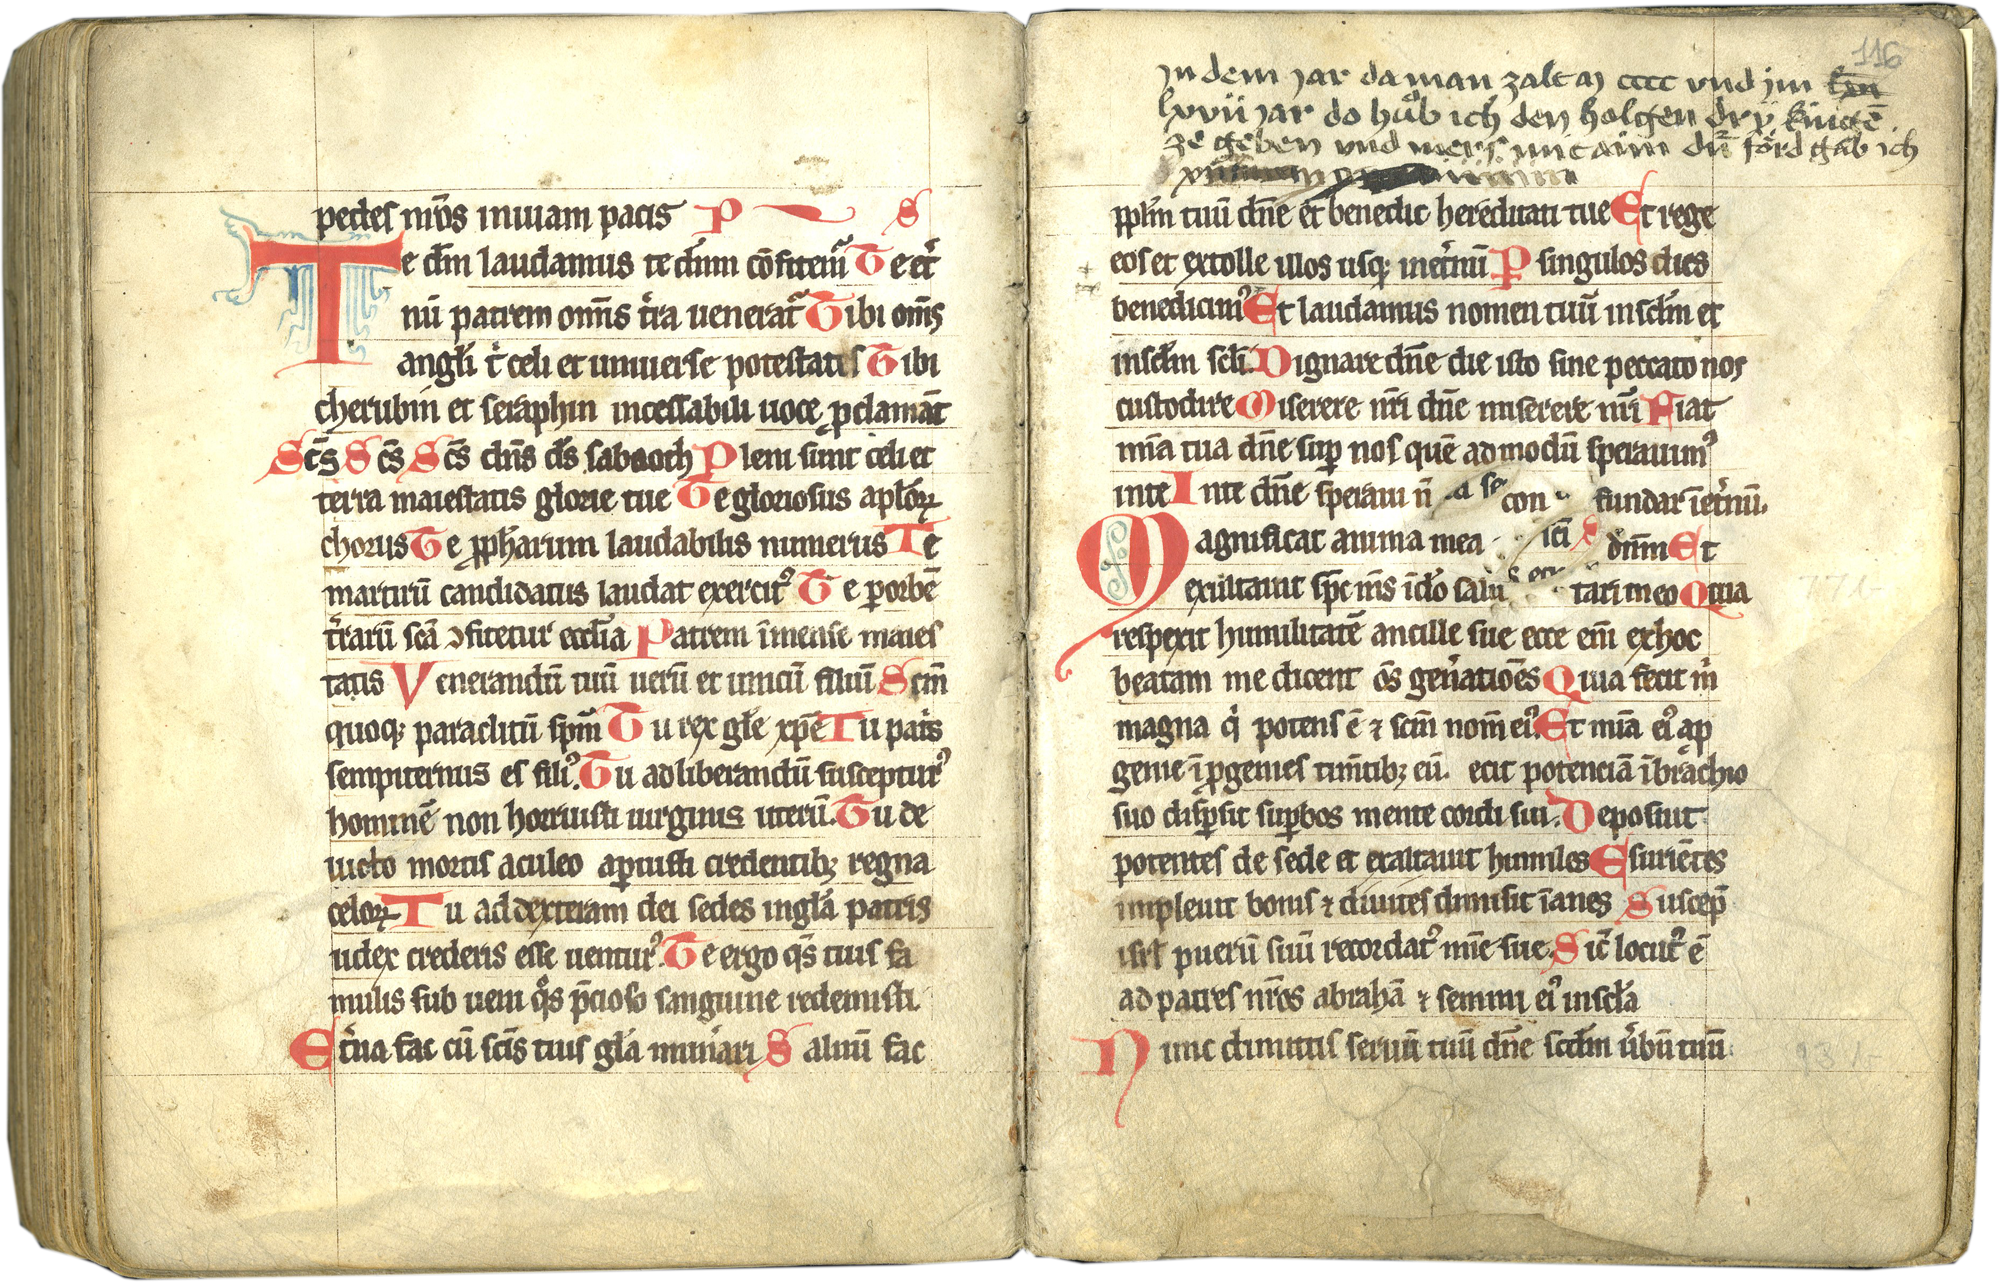 pedes nr̄os in uiam pacis P S
Te dm̄ laudamus te dn̄m cōfitemᷣ Te et̾
nū patrem om̄s t̾ra ueneratᷣ Tibi om̄s
angl̄i t̾ celi et uniuerse potestatis Tibi
cherubin et seraphin incessabili uoce ꝓclamāt
Sc̄s Sc̄s Sc̄s dn̄s ds̄ sabaoth Pleni sunt celi et
terra maiestatis glorie tue Te gloriosus apl̄oꝝ
chorus Te ꝓph̄arum laudabilis numerus Te
martirū candidatus laudat exercitꝰ Te ꝑ orbē
t̾rarū scā ꝯfitetur eccl̄ia Patrem īmense maies
tatis Venerandū tuū uerū et unicū filiū Scm̄
quoqꝫ paraclitū spm̄ Tu rex gl̄e xp̄e Tu pat̾s
sempiternus es filiꝰ Tu ad liberandū susceptūrꝰ
hominē non horruisti uirginis uterū Tu de
uicto mortis aculeo aꝑuisti credentibꝫ regna
celoꝝ Tu ad dexteram dei sedes in gl̄a patris
iudex crederis esse uenturꝰ Te ergo qs̄ tuis fa
mulis sub ueni qͦs p̄cioso sanguine redemisti
Et̾na fac cū sc̄is tuis gl̄a munerari Saluū fac
116
In dem jar da man zalt M cccc vnd jm
lxvii jar do hůb ich den holgen dry küngē
ze geben vnd
ppl̄m tuū dn̄e et benedic hereditati tue Et rege
eos et extolle illos usqꝫ in et̾nū P singulos dies
benedicimꝰ Et laudamus nomen tuū in sclm̄ et
in sclm̄ scl̄i Dignare dn̄e die isto sine peccato nos
custodire Miserere nr̄i dn̄e miserere nr̄i Fiat
mīa tua dn̄e suꝑ nos quē admodū sperauimꝰ
in te In te dn̄e speraui n̄ con fundar ī et̾nū
Magnificat anima mea dn̄m Et
exultauit spc̄ ms̄ ī do̅ salu tari meo Quia
respexit humilitatē ancille sue ecce em̄ ex hoc
beatam me dicent os̄ gen̾atiōes Quia fecit m̾
magna qͥ potens ē ⁊ scm̄ nom̄ eiꝰ Et mīa eiꝰ a ꝓ
genie ī ꝓgenies timētibꝫ eū ecit potenciā ī brachio
suo disꝑsit suꝑbos mente cordi sui Deposuit
potentes de sede et exaltauit humiles Esuriētes
impleuit bonis ⁊ diuites dimisit īanes Suscep̄
isrl̄ puerū suū recordatꝰ mīe sue Sic̄ locutꝰ ē
ad patres nr̄os abrahā ⁊ semini eiꝰ in scl̄a
Nunc dimittis seruū tuū dn̄e scdm̄ ūbū tuū